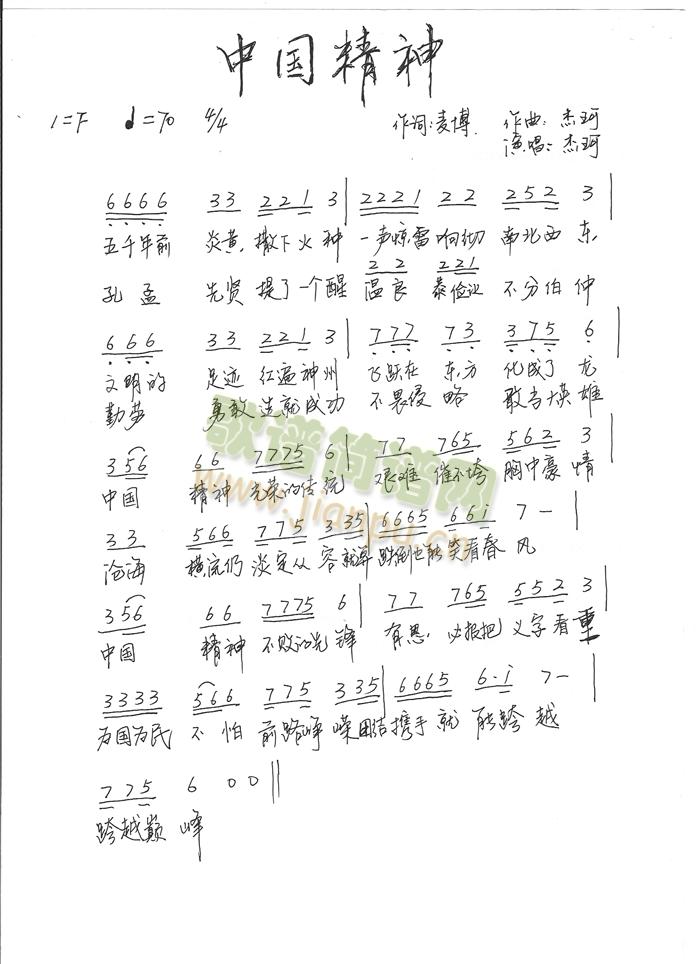 中国精神
1=F ♩=70 4/4 作词:麦博. 作曲:杰珂
演唱:杰珂
6666 33 221 3 | 2221 22 252 3 |
五千年前 炎黄,撒下火种 一声惊雷响彻 南北西东,
22 221
孔孟 先贤 提了一个醒 温良 恭俭让 不分伯仲
666 33 221 3 | 777 73 375 6 |
文明的 足迹 红遍神州 飞跃在 东方 化成了龙
勤劳 勇敢 造就成功 不畏侵略 敢当英雄
356 66 7775 6 | 77 765 562 3 |
中国 精神 光荣的传统 艰难 催不垮 胸中豪情
33 566 775 335 | 6665 66i 7 - |
沧海 横流仍 淡定从容就算 跌倒也能笑看春风
356 66 7775 6 | 77 765 552 3 |
中国 精神 不败的先锋 有恩, 必报把 义字看重
3333 566 775 335 | 6665 6·i 7 - |
为国为民 不怕 前路峥嵘团结携手就 能跨越
775 6 0 0 ||
跨越巅峰
歌谱简谱网
www.jianpu.cn